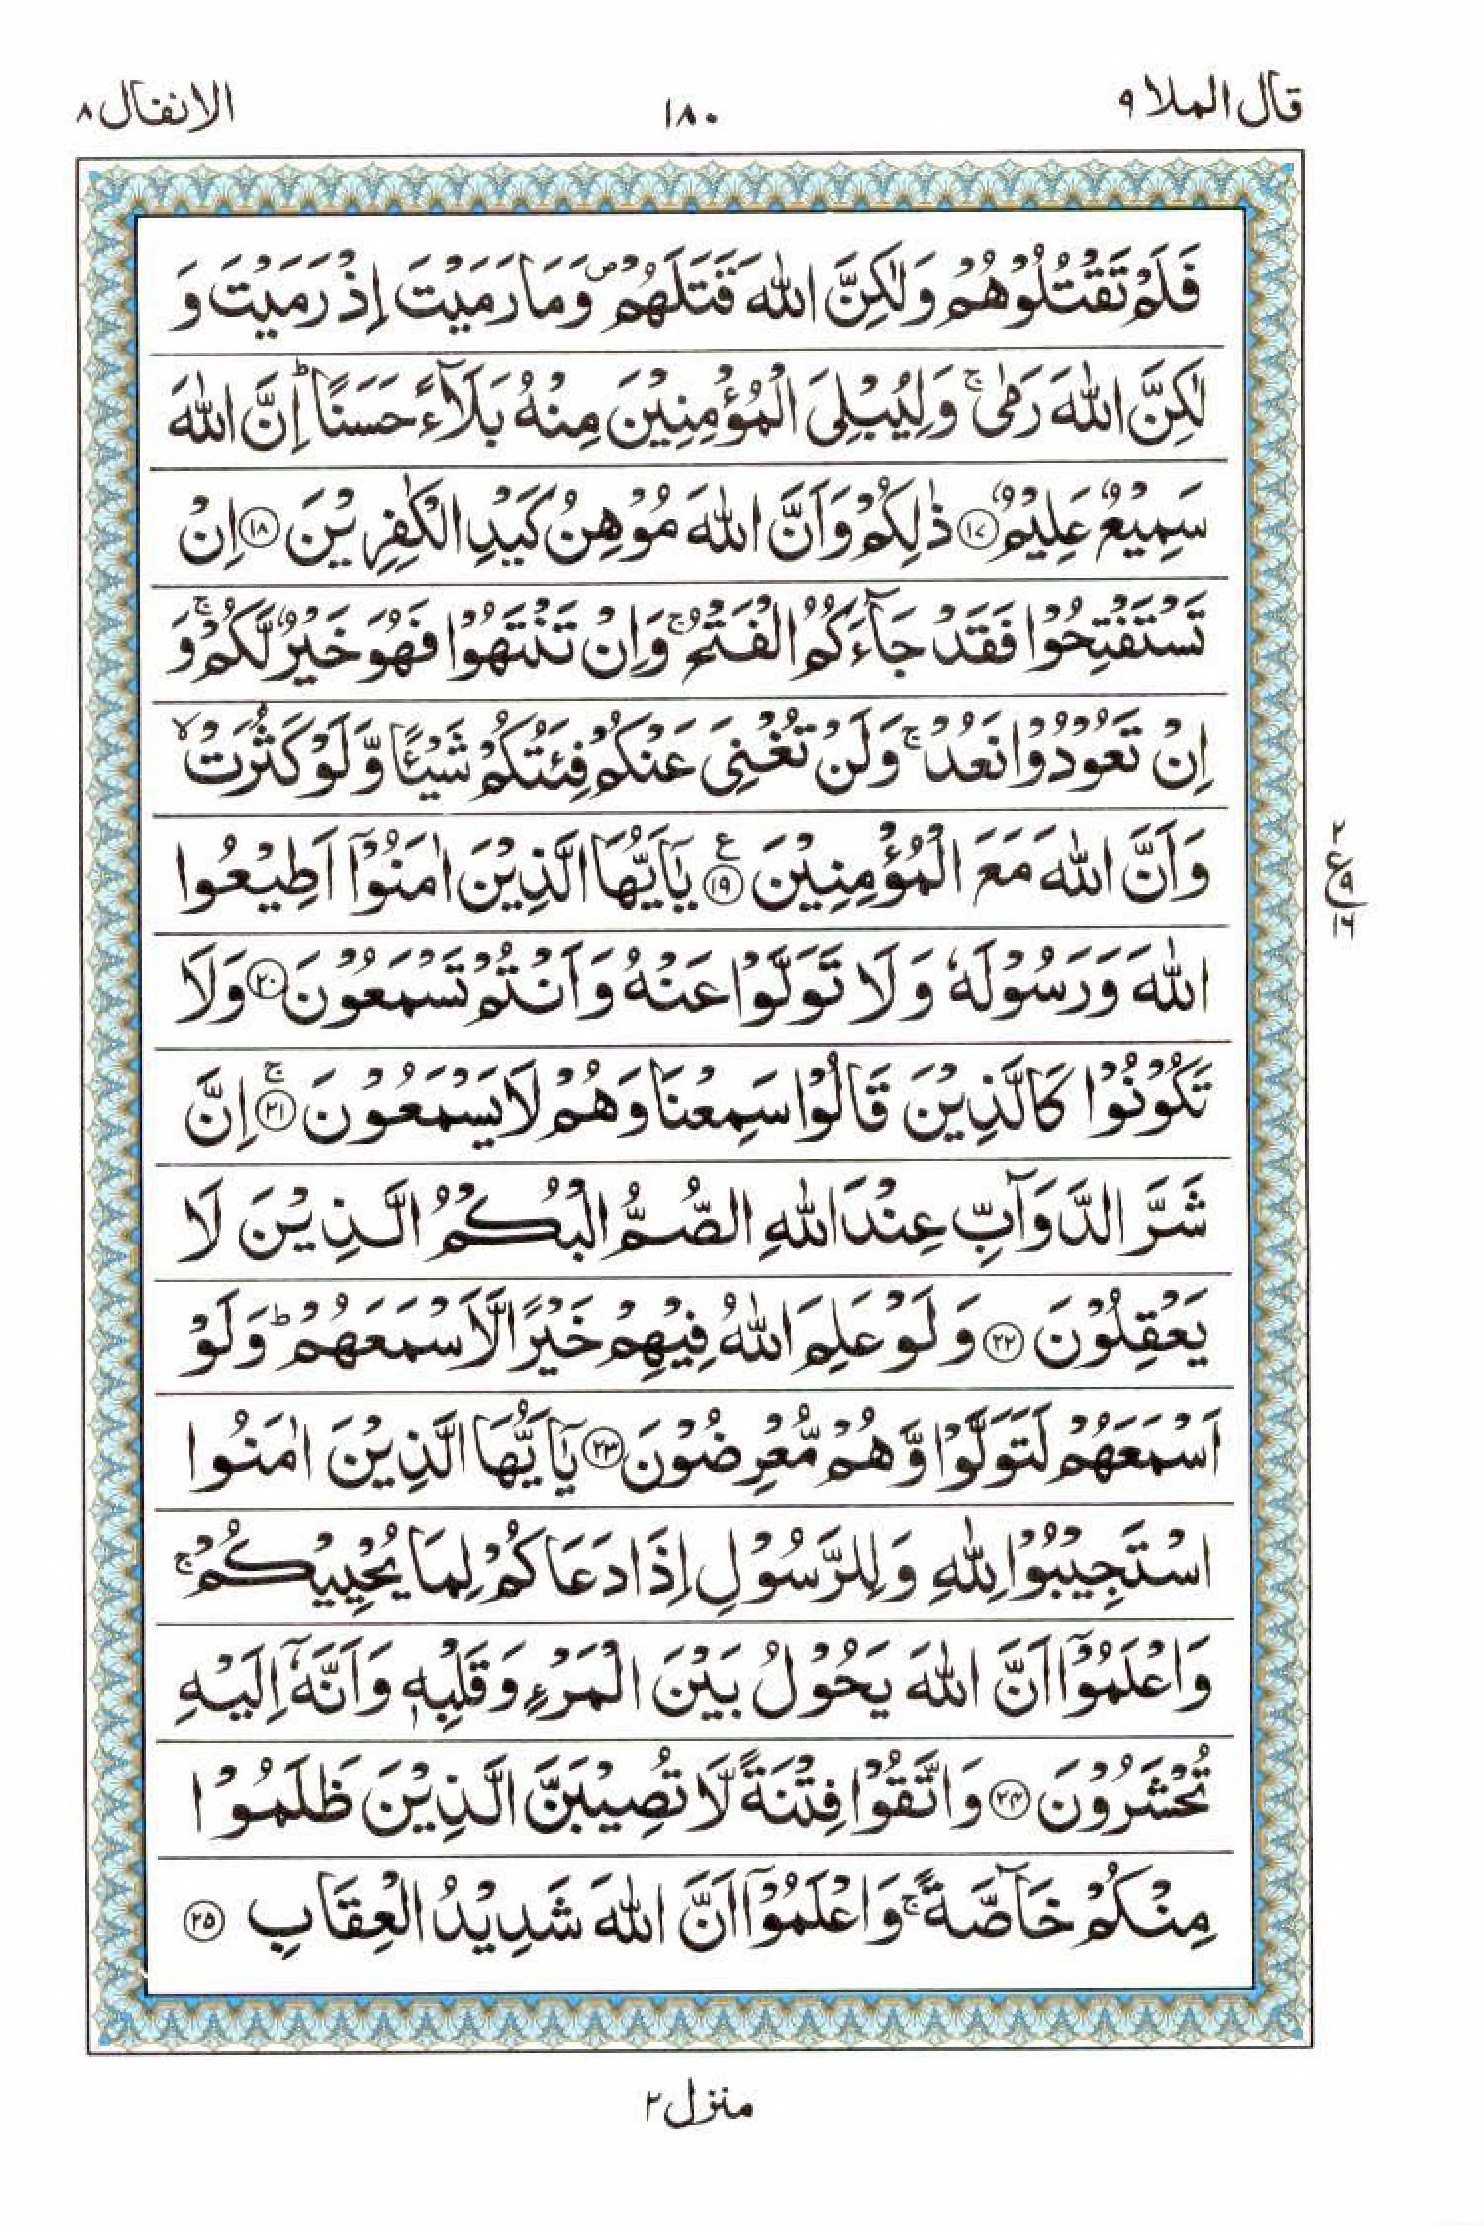 قال الملا ٩
١٨٠
الانفال ٨
فَلَمْ تَقْتُلُوْهُمْ وَلٰكِنَّ اللّٰهَ قَتَلَهُمْ ۪ وَمَا رَمَيْتَ اِذْ رَمَيْتَ وَ
لٰكِنَّ اللّٰهَ رَمٰى ۚ وَلِيُبْلِىَ الْمُؤْمِنِيْنَ مِنْهُ بَلَآءً حَسَنًا ؕ اِنَّ اللّٰهَ
سَمِيْعٌ عَلِيْمٌ ﴿۱۷﴾ ذٰلِكُمْ وَاَنَّ اللّٰهَ مُوْهِنُ كَيْدِ الْكٰفِرِيْنَ ﴿۱۸﴾ اِنْ
تَسْتَفْتِحُوْا فَقَدْ جَآءَكُمُ الْفَتْحُ ۚ وَاِنْ تَنْتَهُوْا فَهُوَ خَيْرٌ لَّكُمْ ۚ وَ
اِنْ تَعُوْدُوْا نَعُدْ ۚ وَلَنْ تُغْنِىَ عَنْكُمْ فِئَتُكُمْ شَيْـًٔا وَّلَوْ كَثُرَتْ ۙ
وَاَنَّ اللّٰهَ مَعَ الْمُؤْمِنِيْنَ ﴿۱۹﴾ ع يٰٓاَيُّهَا الَّذِيْنَ اٰمَنُوْٓا اَطِيْعُوا
اللّٰهَ وَرَسُوْلَهٗ وَلَا تَوَلَّوْا عَنْهُ وَاَنْتُمْ تَسْمَعُوْنَ ﴿۲۰﴾ وَلَا
تَكُوْنُوْا كَالَّذِيْنَ قَالُوْا سَمِعْنَا وَهُمْ لَا يَسْمَعُوْنَ ﴿۲۱﴾ ۚ اِنَّ
شَرَّ الدَّوَآبِّ عِنْدَ اللّٰهِ الصُّمُّ الْبُكْمُ الَّذِيْنَ لَا
يَعْقِلُوْنَ ﴿۲۲﴾ وَلَوْ عَلِمَ اللّٰهُ فِيْهِمْ خَيْرًا لَّاَسْمَعَهُمْ ؕ وَلَوْ
اَسْمَعَهُمْ لَتَوَلَّوْا وَّهُمْ مُّعْرِضُوْنَ ﴿۲۳﴾ يٰٓاَيُّهَا الَّذِيْنَ اٰمَنُوا
اسْتَجِيْبُوْا لِلّٰهِ وَلِلرَّسُوْلِ اِذَا دَعَاكُمْ لِمَا يُحْيِيْكُمْ ۚ
وَاعْلَمُوْٓا اَنَّ اللّٰهَ يَحُوْلُ بَيْنَ الْمَرْءِ وَقَلْبِهٖ وَاَنَّهٗٓ اِلَيْهِ
تُحْشَرُوْنَ ﴿۲۴﴾ وَاتَّقُوْا فِتْنَةً لَّا تُصِيْبَنَّ الَّذِيْنَ ظَلَمُوْا
مِنْكُمْ خَآصَّةً ۚ وَاعْلَمُوْٓا اَنَّ اللّٰهَ شَدِيْدُ الْعِقَابِ ﴿۲۵﴾
۲
ع ۹
۱۶
منزل ۲